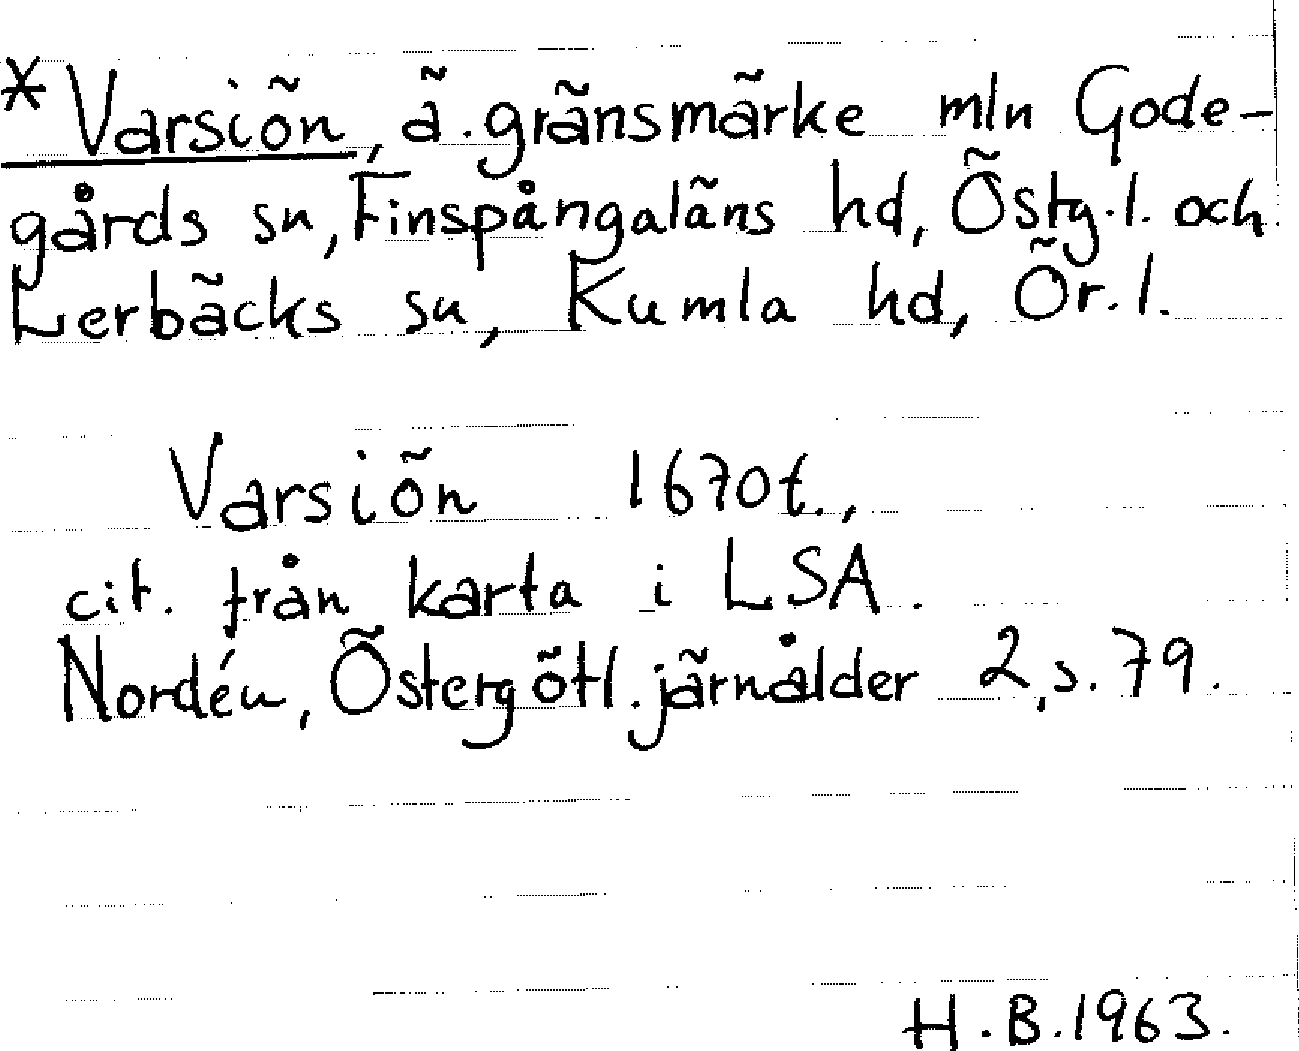 *Varsiön, ä. gränsmärke mln Gode-
gårds sn, Finspångaläns hd, Östg.l. och
Lerbäcks sn, Kumla hd, Ör.l.
Varsiön 1670t.,
cit. från karta i LSA.
Nordén, Östergötl. järnålder 2, s. 79.
H.B. 1963.